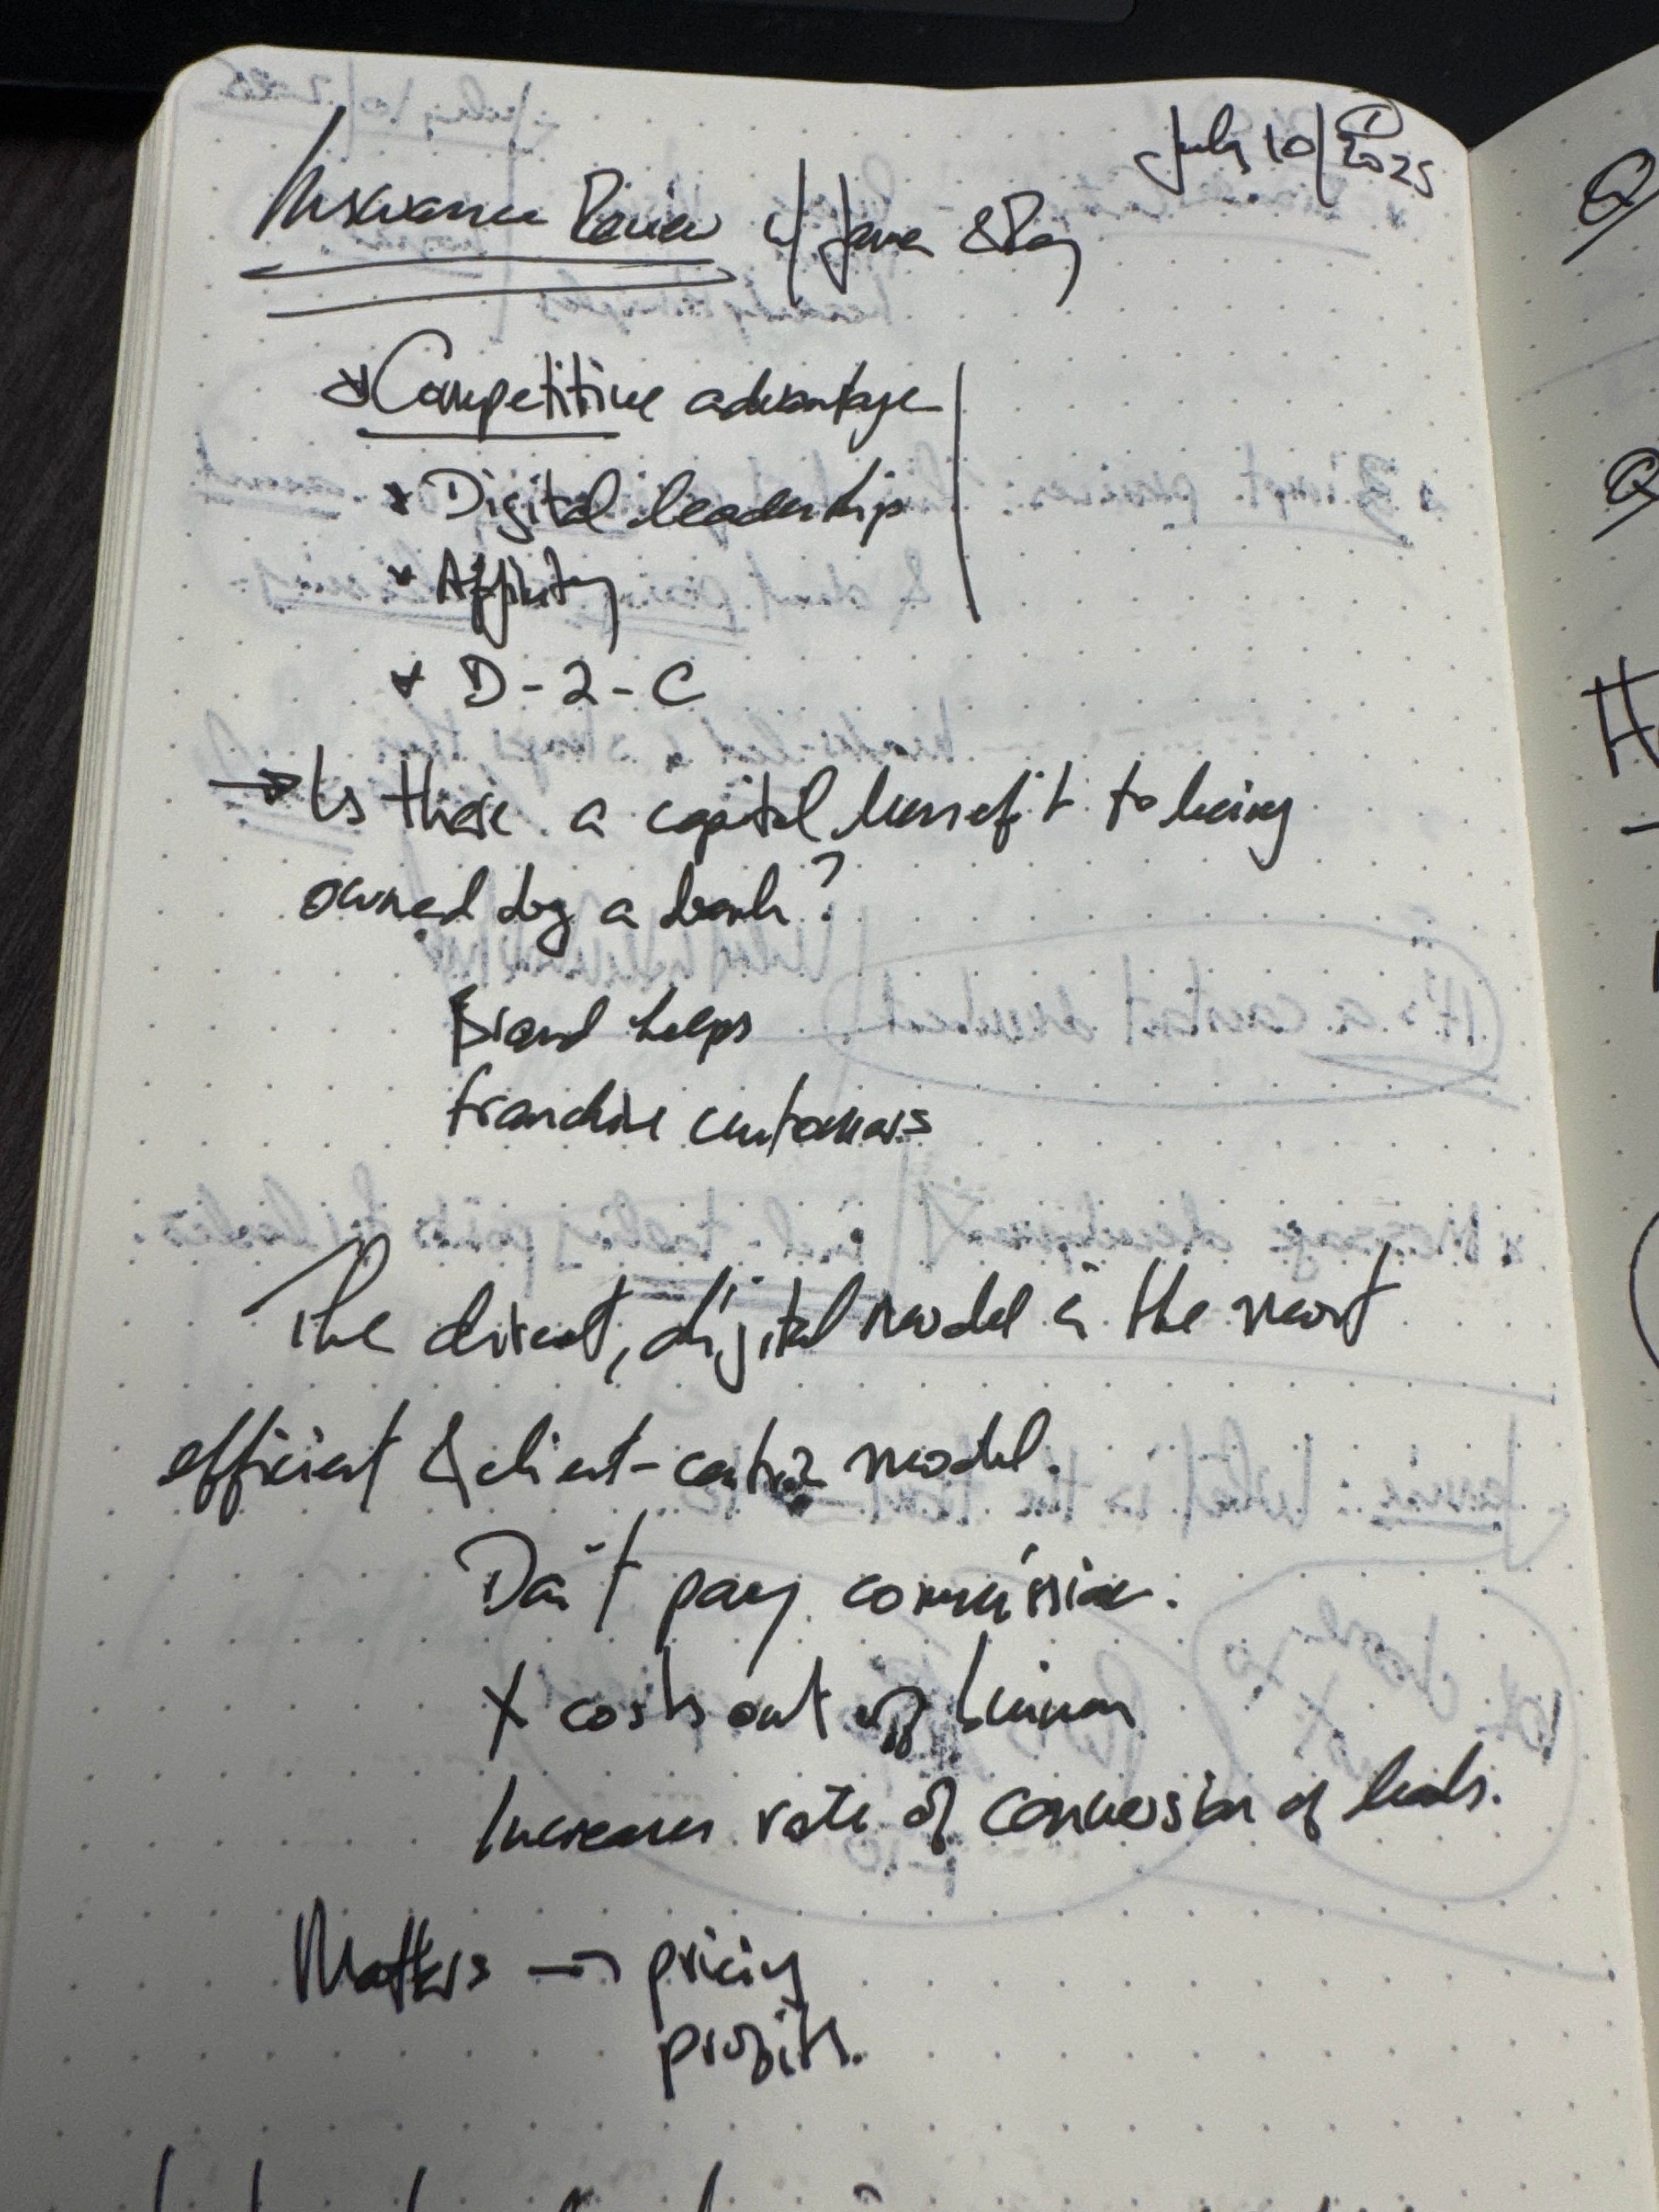 July 10/2025
①
Insurance Review w/ &
* Competitive advantage
* Digital leadership
* Affinity
* D-2-C
→ Is there a capital benefit to being
owned by a bank?
Brand helps
franchise customers
The direct, digital model is the most
efficient & client-centric model.
Don't pay commission.
X costs out of business
Increases rate of conversion of leads.
Matters → pricing
profits.
Q/
Q